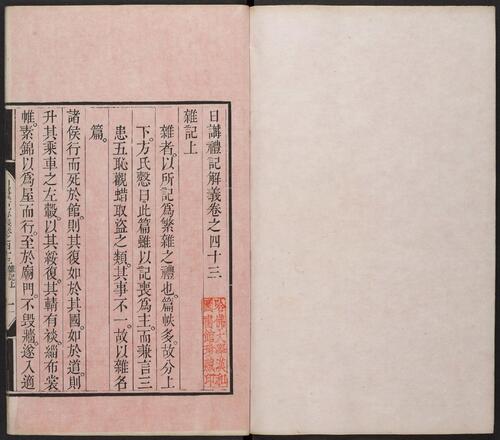 日講禮記解義卷之四十三
雜記上
雜者以所記爲繁雜之禮也篇帙多故分上
下方氏慤曰此篇雖以記喪爲主而兼言三
患五恥觀蜡取盜之類其事不一故以雜名
篇
諸侯行而死於館則其復如於其國如於道則
升其乘車之左轂以其綏復其輤有裧緇布裳
帷素錦以爲屋而行至於廟門不毀牆遂入適
哈佛大學漢和
圖書館珍藏印
雜記上
一